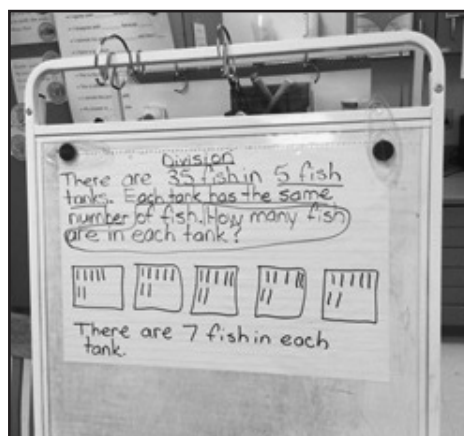 Division
There are 35 fish in 5 fish
tanks. Each tank has the same
number of fish. How many fish
are in each tank?
There are 7 fish in each
tank.